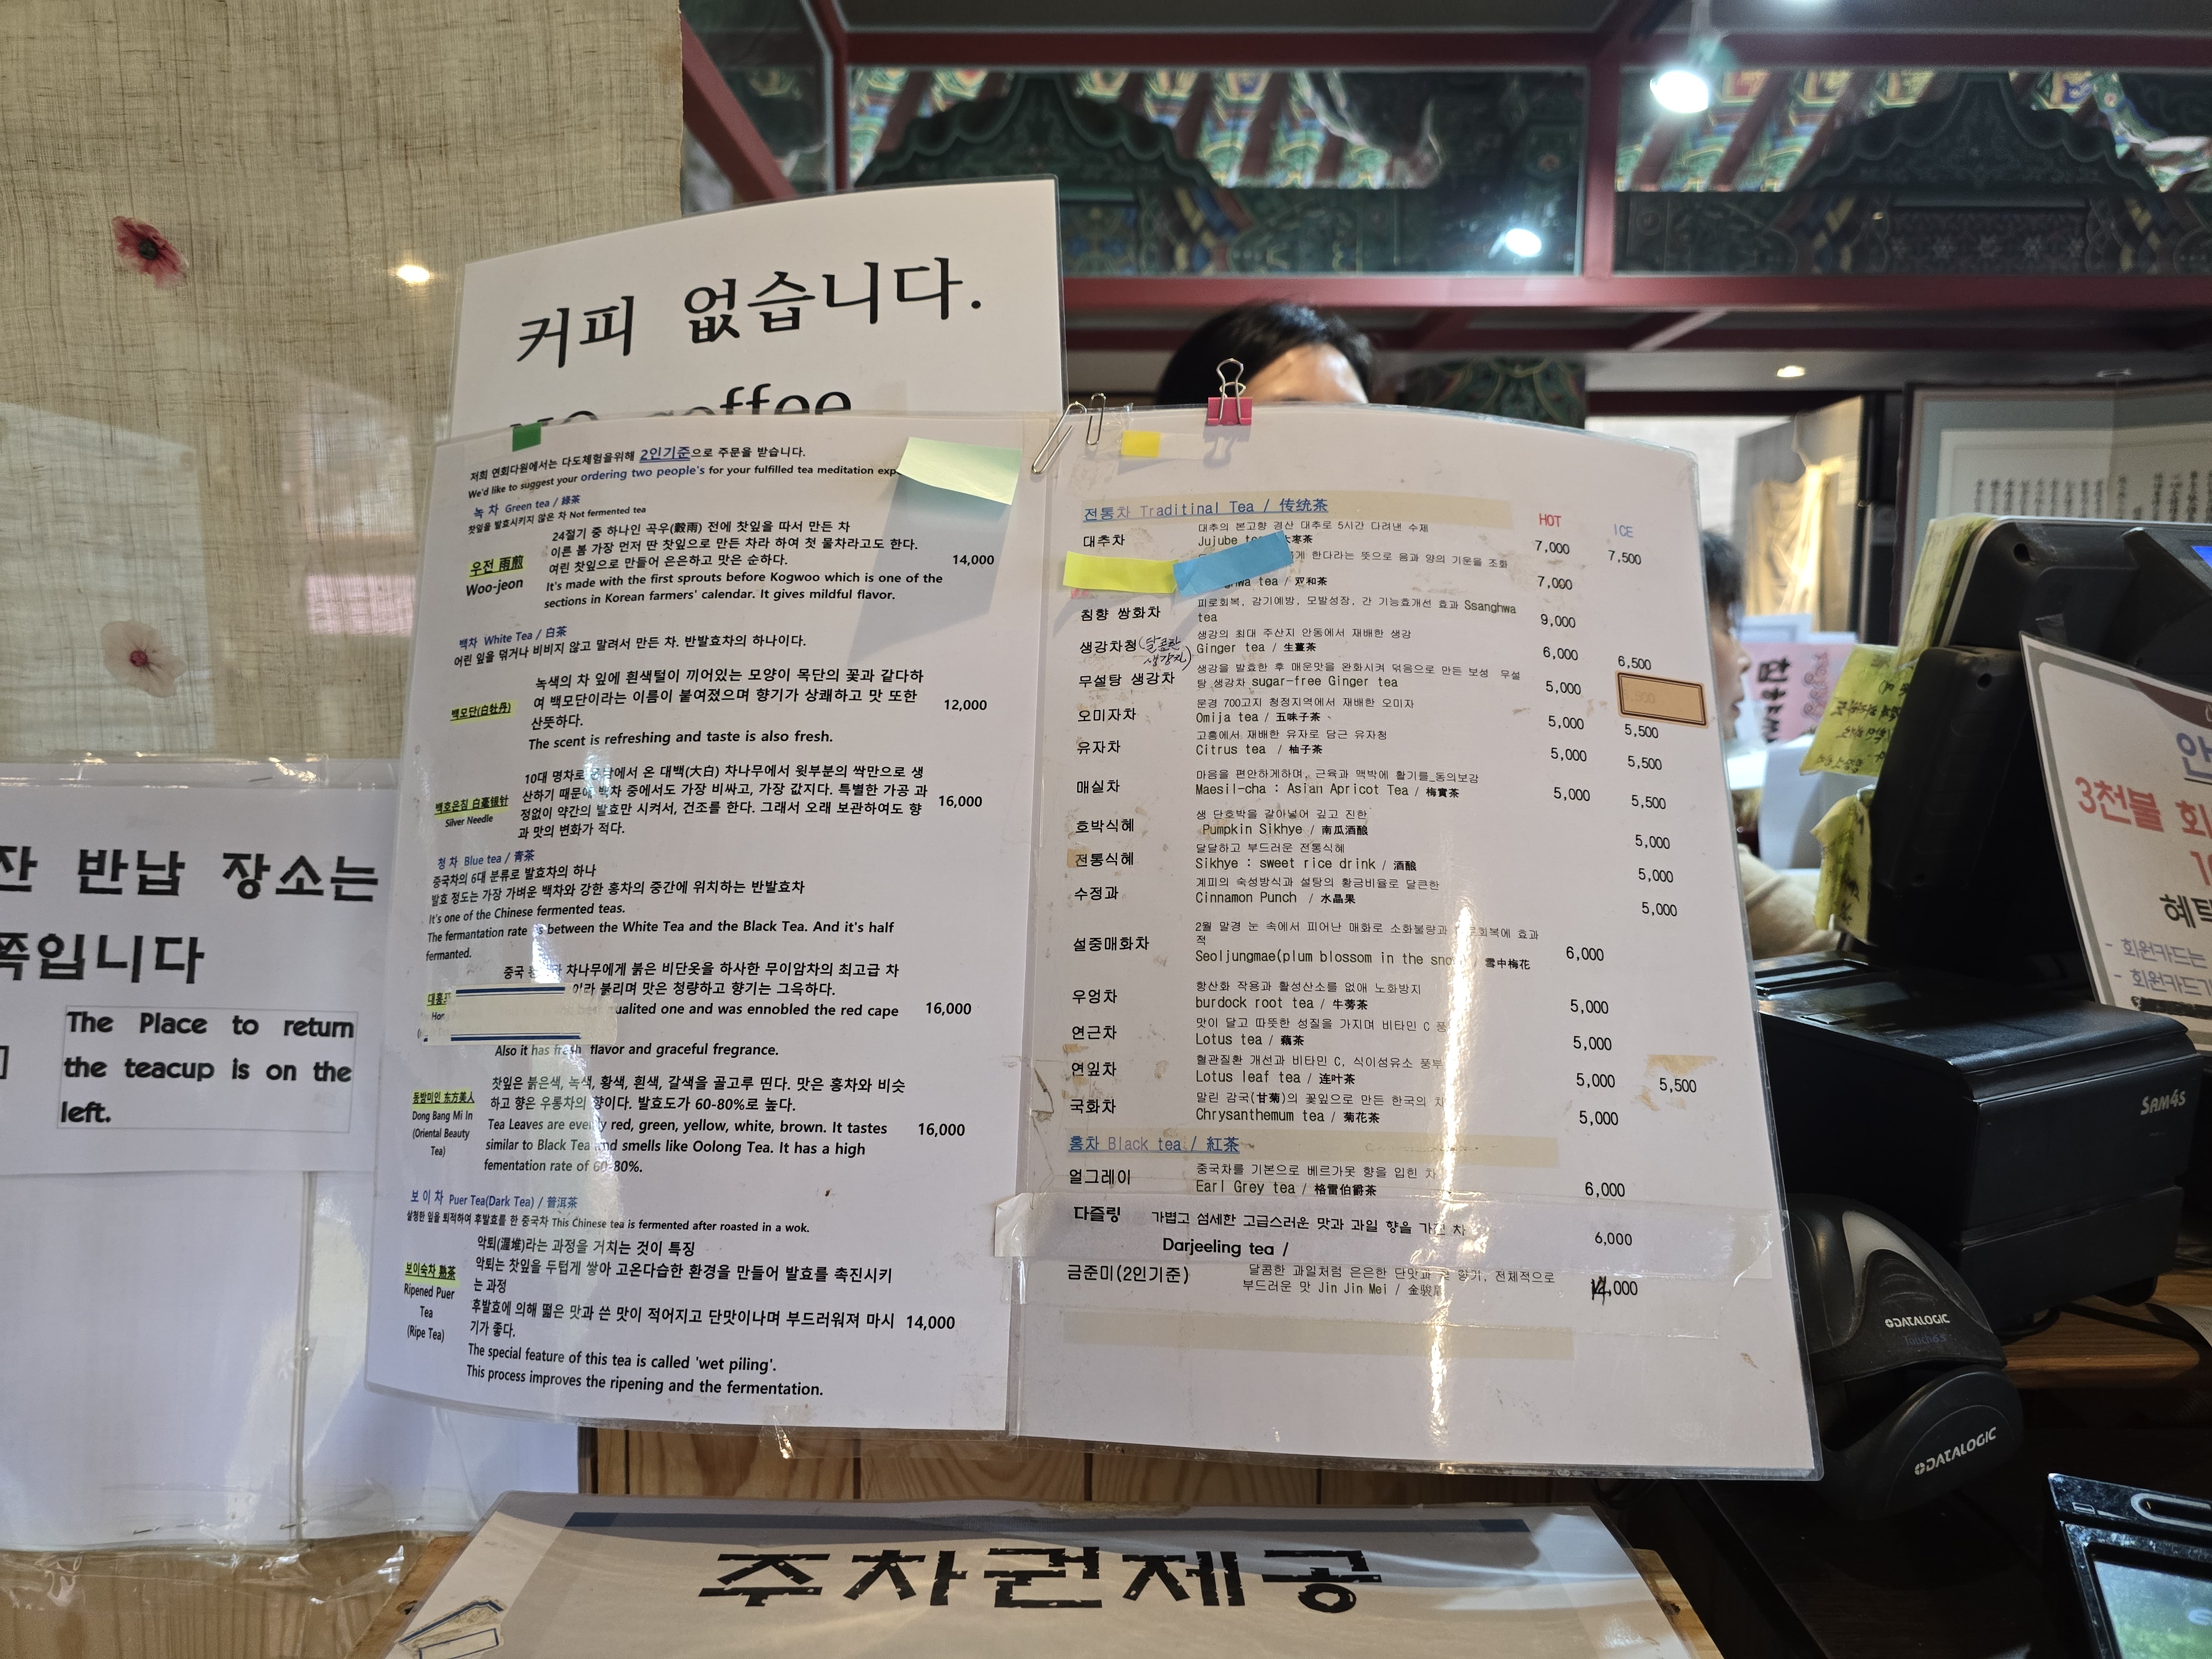 커피 없습니다.
coffee
저희 연회다원에서는 다도체험을위해 2인기준으로 주문을 받습니다.
We'd like to suggest your ordering two people's for your fulfilled tea meditation
녹 차 Green tea / 綠茶
찻잎을 발효시키지 않은 차 Not fermented tea
24절기 중 하나인 곡우(穀雨) 전에 찻잎을 따서 만든 차
이른 봄 가장 먼저 딴 찻잎으로 만든 차라 하여 첫 물차라고도 한다.
여린 찻잎으로 만들어 은은하고 맛은 순하다.
우전 雨煎
Woo-jeon
14,000
It's made with the first sprouts before Kogwoo which is one of the
sections in Korean farmers' calendar. It gives mildful flavor.
백차 White Tea / 白茶
어린 잎을 덖거나 비비지 않고 말려서 만든 차. 반발효차의 하나이다.
녹색의 차 잎에 흰색털이 끼어있는 모양이 목단의 꽃과 같다하
여 백모단이라는 이름이 붙여졌으며 향기가 상쾌하고 맛 또한
산뜻하다.
백모단(白牡丹)
12,000
The scent is refreshing and taste is also fresh.
10대 명차로 에서 온 대백(大白) 차나무에서 윗부분의 싹만으로 생
산하기 때문에 백차 중에서도 가장 비싸고, 가장 값지다. 특별한 가공 과
정없이 약간의 발효만 시켜서, 건조를 한다. 그래서 오래 보관하여도 향
과 맛의 변화가 적다.
백호은침 白毫银针
Silver Needle
16,000
청 차 Blue tea / 青茶
중국차의 6대 분류로 발효차의 하나
발효 정도는 가장 가벼운 백차와 강한 홍차의 중간에 위치하는 반발효차
It's one of the Chinese fermented teas.
The fermantation rate is between the White Tea and the Black Tea. And it's half
fermanted.
중국 차나무에게 붉은 비단옷을 하사한 무이암차의 최고급 차
이라 불리며 맛은 청량하고 향기는 그윽하다.
qualited one and was ennobled the red cape
16,000
Also it has fresh flavor and graceful fregrance.
찻잎은 붉은색, 녹색, 황색, 흰색, 갈색을 골고루 띤다. 맛은 홍차와 비슷
하고 향은 우롱차의 향이다. 발효도가 60-80%로 높다.
동방미인 东方美人
Dong Bang Mi In
(Oriental Beauty
Tea)
Tea Leaves are evenly red, green, yellow, white, brown. It tastes
similar to Black Tea and smells like Oolong Tea. It has a high
fementation rate of 60-80%.
16,000
보 이 차 Puer Tea(Dark Tea) / 普洱茶
살청한 잎을 퇴적하여 후발효를 한 중국차 This Chinese tea is fermented after roasted in a wok.
악퇴(渥堆)라는 과정을 거치는 것이 특징
악퇴는 찻잎을 두텁게 쌓아 고온다습한 환경을 만들어 발효를 촉진시키
는 과정
후발효에 의해 떫은 맛과 쓴 맛이 적어지고 단맛이나며 부드러워져 마시
기가 좋다.
보이숙차 熟茶
Ripened Puer
Tea
(Ripe Tea)
14,000
The special feature of this tea is called 'wet piling'.
This process improves the ripening and the fermentation.
전통차 Traditinal Tea / 传统茶
HOT ICE
대추의 본고향 경산 대추로 5시간 다려낸 수제
대추차 Jujube 7,000 7,500
게 한다라는 뜻으로 음과 양의 기운을 조화
tea / 双和茶 7,000
침향 쌍화차 피로회복, 감기예방, 모발성장, 간 기능효개선 효과 Ssanghwa
tea 9,000
생강의 최대 주산지 안동에서 재배한 생강
생강차청(달콤한 생강차) Ginger tea / 生薑茶 6,000 6,500
무설탕 생강차 생강을 발효한 후 매운맛을 완화시켜 덖음으로 만든 보성 무설
탕 생강차 sugar-free Ginger tea 5,000
문경 700고지 청정지역에서 재배한 오미자
오미자차 Omija tea / 五味子茶 5,000 5,500
고흥에서 재배한 유자로 당근 유자청
유자차 Citrus tea / 柚子茶 5,000 5,500
마음을 편안하게하며, 근육과 맥박에 활기를_동의보감
매실차 Maesil-cha : Asian Apricot Tea / 梅實茶 5,000 5,500
생 단호박을 갈아넣어 깊고 진한
호박식혜 Pumpkin Sikhye / 南瓜酒酿 5,000
달달하고 부드러운 전통식혜
전통식혜 Sikhye : sweet rice drink / 酒酿 5,000
계피의 숙성방식과 설탕의 황금비율로 달큰한
수정과 Cinnamon Punch / 水晶果 5,000
2월 말경 눈 속에서 피어난 매화로 소화불량과 효과
적
설중매화차 Seoljungmae(plum blossom in the / 雪中梅花 6,000
항산화 작용과 활성산소를 없애 노화방지
우엉차 burdock root tea / 牛蒡茶 5,000
맛이 달고 따뜻한 성질을 가지며 비타민 C
연근차 Lotus tea / 藕茶 5,000
혈관질환 개선과 비타민 C, 식이섬유소 풍부
연잎차 Lotus leaf tea / 连叶茶 5,000 5,500
말린 감국(甘菊)의 꽃잎으로 만든 한국의
국화차 Chrysanthemum tea / 菊花茶 5,000
홍차 Black tea / 紅茶
중국차를 기본으로 베르가못 향을 입힌 차
얼그레이 Earl Grey tea / 格雷伯爵茶 6,000
다즐링 가볍고 섬세한 고급스러운 맛과 과일 향을 가진 차
Darjeeling tea / 6,000
금준미(2인기준) 달콤한 과일처럼 은은한 단맛과 향기, 전체적으로
부드러운 맛 Jin Jin Mei / 金骏眉 14,000
잔 반납 장소는
쪽입니다
The Place to return
the teacup is on the
left.
3천불
혜택
- 회원카드는
- 회원카드
SAM4S
DATALOGIC
Touch65
DATALOGIC
주차권제공